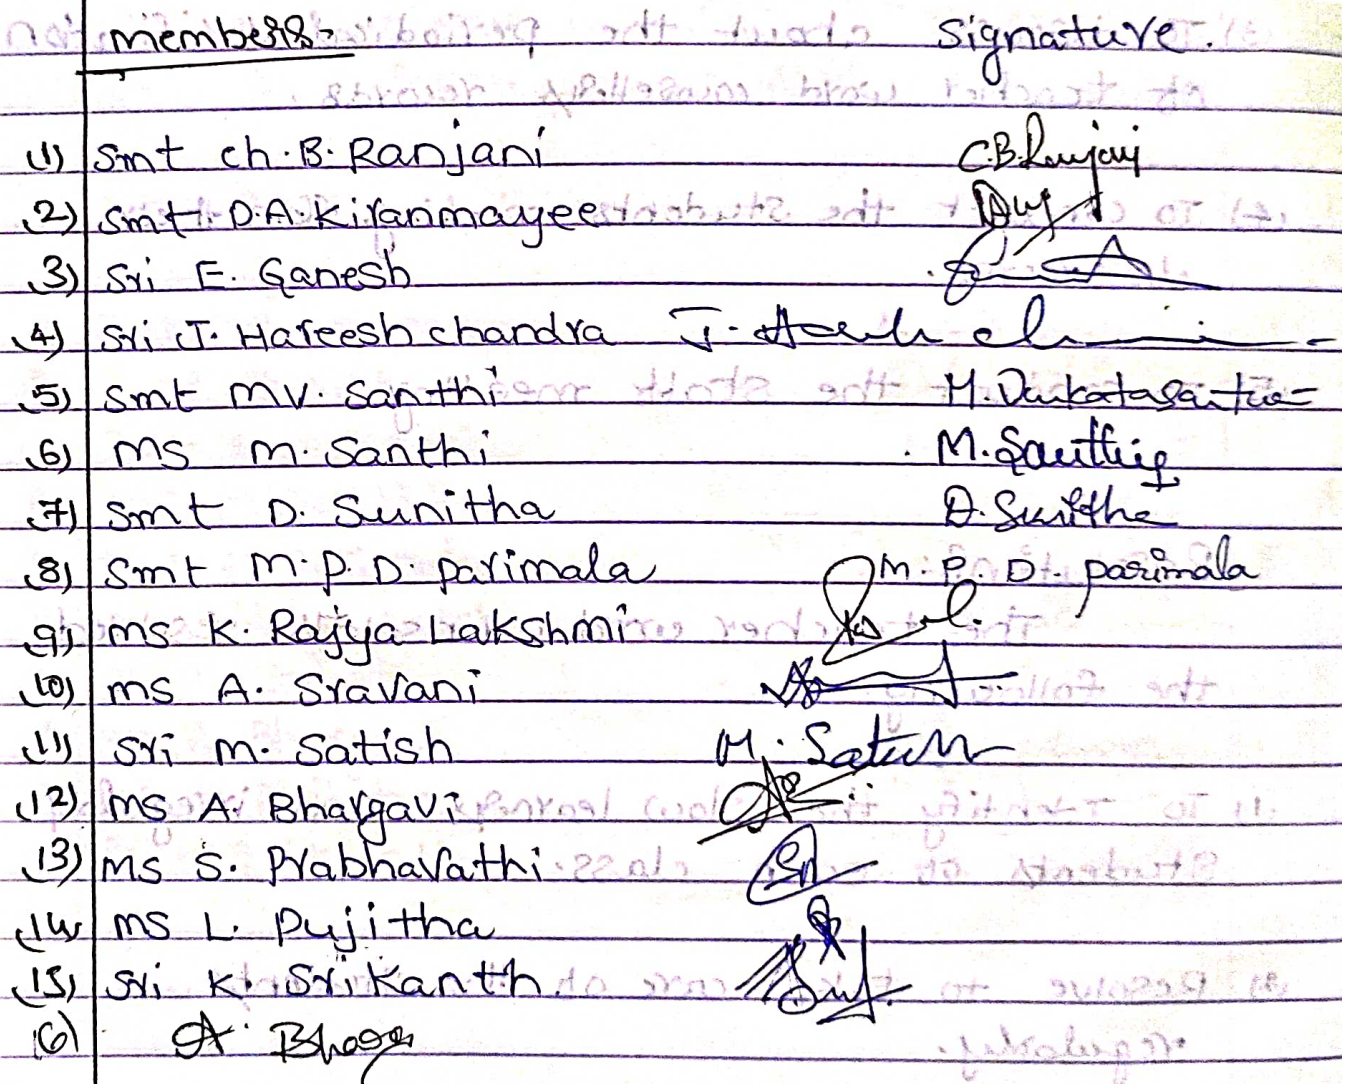 members:- Signature.
(1) Smt ch.B. Ranjani C.B.Ranjani
(2) Smt. D.A. Kiranmayee
(3) Sri E. Ganesh
(4) Sri J. Hareesh chandra J.
(5) Smt MV. Santhi M.Venkatasanthi
(6) ms m. Santhi M.Santhi
(7) Smt D. Sunitha D.Sunitha
(8) Smt M.P.D. Parimala M.P.D. Parimala
(9) ms K. Rajya Lakshmi
(10) ms A. Sravani
(11) Sri m. Satish M. Satish
(12) ms A. Bhargavi
(13) ms S. Prabhavathi
(14) ms L. Pujitha
(15) Sri K. Srikanth
16) A.